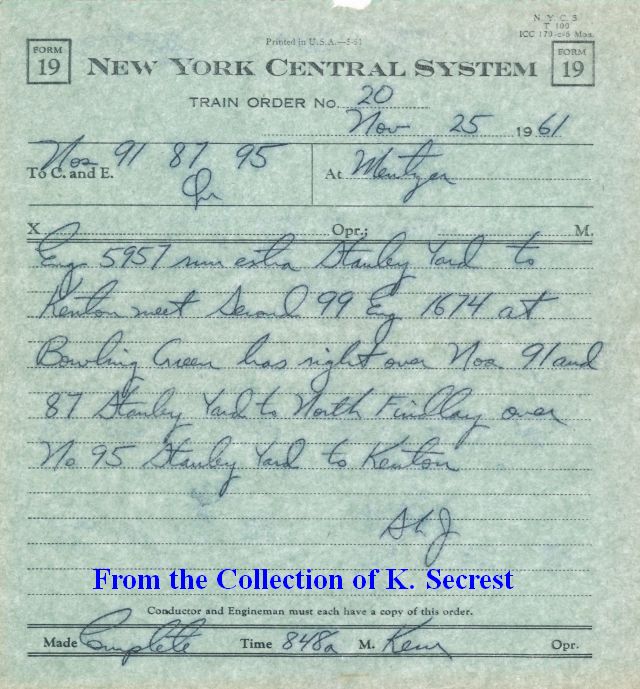 N Y C S
T 100
ICC 179-c-6 Mos.
Printed in U.S.A.—5-61
FORM
19
NEW YORK CENTRAL SYSTEM
FORM
19
TRAIN ORDER No. 20
Nov 25 1961
To C. and E. Nos 91 87 95
Opr
At Mentzer
X Opr.; M.
Eng 5957 run extra Stanley Yard to
Kenton meet Second 99 Eng 1674 at
Bowling Green has right over Nos 91 and
87 Stanley Yard to North Findlay over
No 95 Stanley Yard to Kenton
From the Collection of K. Secrest
Conductor and Engineman must each have a copy of this order.
Made Complete Time 848a M. Opr.